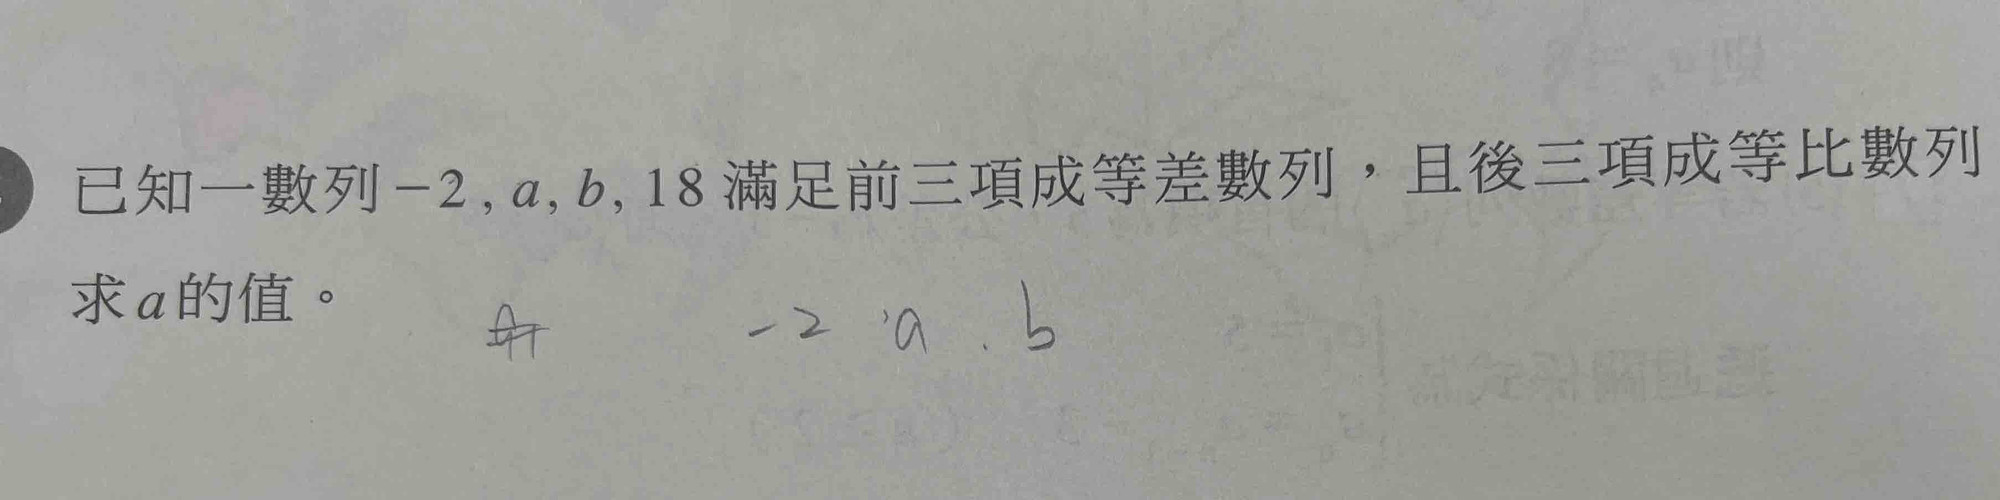 已知一數列-2, a, b, 18滿足前三項成等差數列，且後三項成等比數列
求a的值。
-2 , a . b